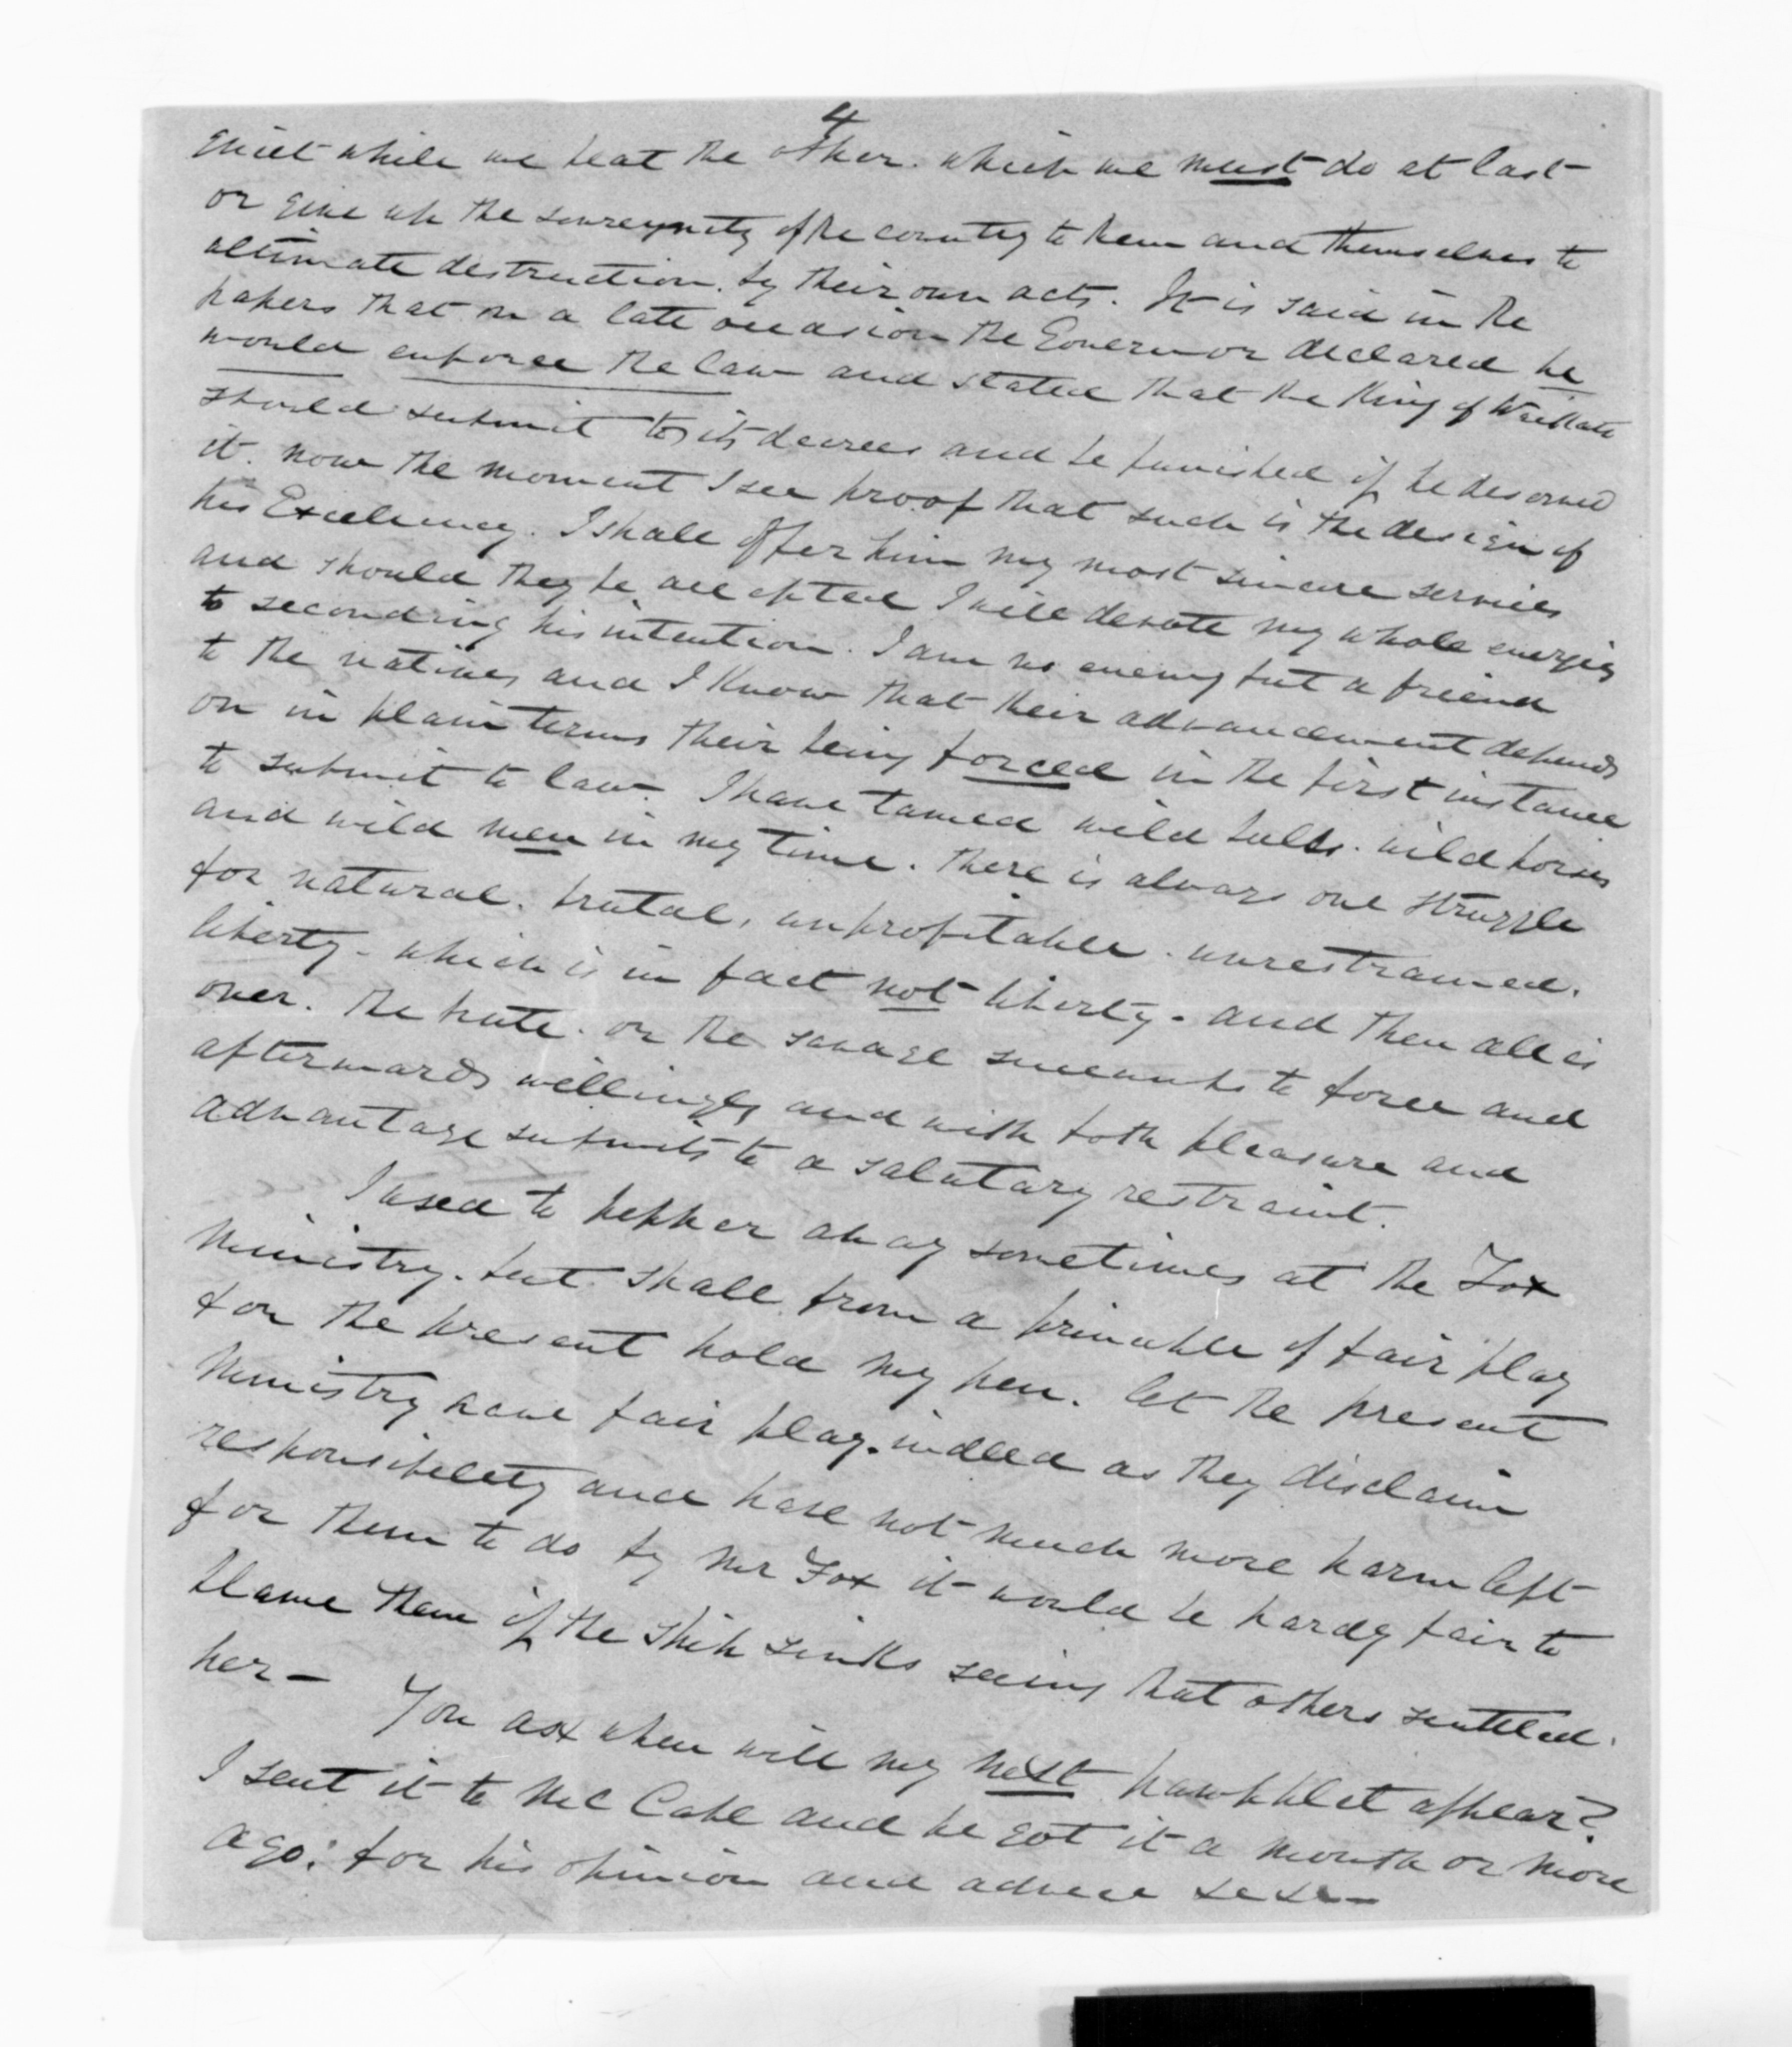 4
quiet while we beat the other. which we must do at last
or give up the sovreynity of the country to them and themselves to
ultimate destruction. by their own acts. It is said in the
papers that on a late occasion the Governor declared he
would enforce the law and stated that the King of Waikato
should submit to its decrees and be punished if he deserved
it. now the moment I see proof that such is the design of
his Excelency. I shall offer him my most sincere services
and should they be accepted I will devote my whole energies
to seconding his intention. I am no enemy but a friend
to the natives and I know that their advancement depends
on in plain terms their being forced in the first instance
to submit to law. I have tamed wild bulls. wild horses
and wild men in my time. there is always one struggle
for natural. brutal, unprofitable. unrestrained.
liberty - which is in fact not liberty - and then all is
over. the brute. or the savage succumbs to force and
afterwards willingly and with both pleasure and
advantage submits to a salutary restraint.
I used to pepper away sometimes at the Fox
Ministry. but shall from a principle of fair play
for the present hold my pen. let the present
Ministry have fair play. indeed as they disclaim
responsibility and have not much more harm left
for them to do by Mr Fox it would be hardy fair to
blame them if the ship sinks seeing that others scuttled.
her - You ask when will my next pamphlet appear?
I sent it to McCabe and he got it a month or more
ago: for his opinion and advice &c &c -